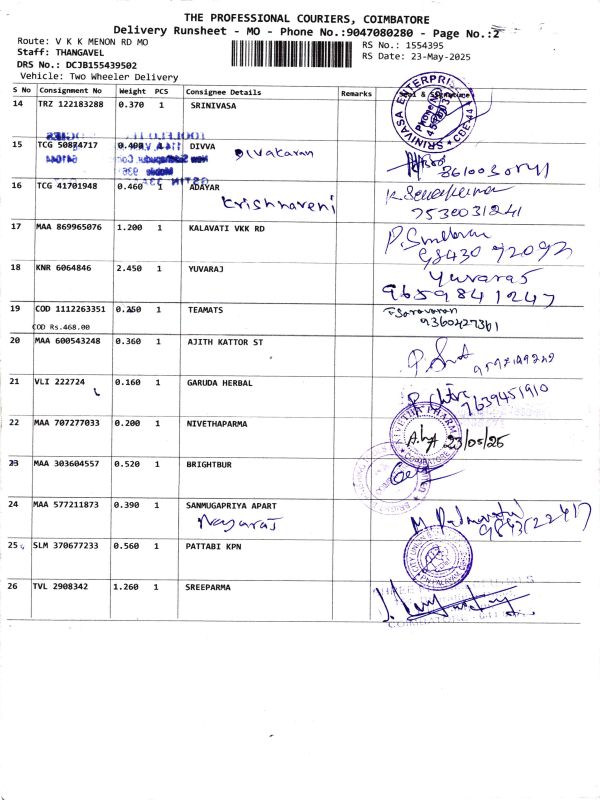 THE PROFESSIONAL COURIERS, COIMBATORE
Delivery Runsheet - MO - Phone No.:9047080280 - Page No.:2
Route: V K K MENON RD MO
RS No.: 1554395
Staff: THANGAVEL
RS Date: 23-May-2025
DRS No.: DCJB155439502
Vehicle: Two Wheeler Delivery
S No Consignment No Weight PCS Consignee Details Remarks
14 TRZ 122183288 0.370 1 SRINIVASA
SRINIVASA ENTERPRISES
15 TCG 50874717 0.400 1 DIVVA Divakaran
8610030541
16 TCG 41701948 0.460 1 ADAYAR
Krishnaveni
7530031241
17 MAA 869965076 1.200 1 KALAVATI VKK RD
98430 92092
18 KNR 6064846 2.450 1 YUVARAJ Yuvaraj
9659841247
19 COD 1112263351 0.250 1 TEAMATS
COD Rs.468.00
9360427361
20 MAA 600543248 0.360 1 AJITH KATTOR ST
21 VLI 222724 0.160 1 GARUDA HERBAL
7639451910
22 MAA 707277033 0.200 1 NIVETHAPARMA
23/05/25
23 MAA 303604557 0.520 1 BRIGHTBUR
24 MAA 577211873 0.390 1 SANMUGAPRIYA APART
Nagaraj
25 SLM 370677233 0.560 1 PATTABI KPN
26 TVL 2908342 1.260 1 SREEPARMA